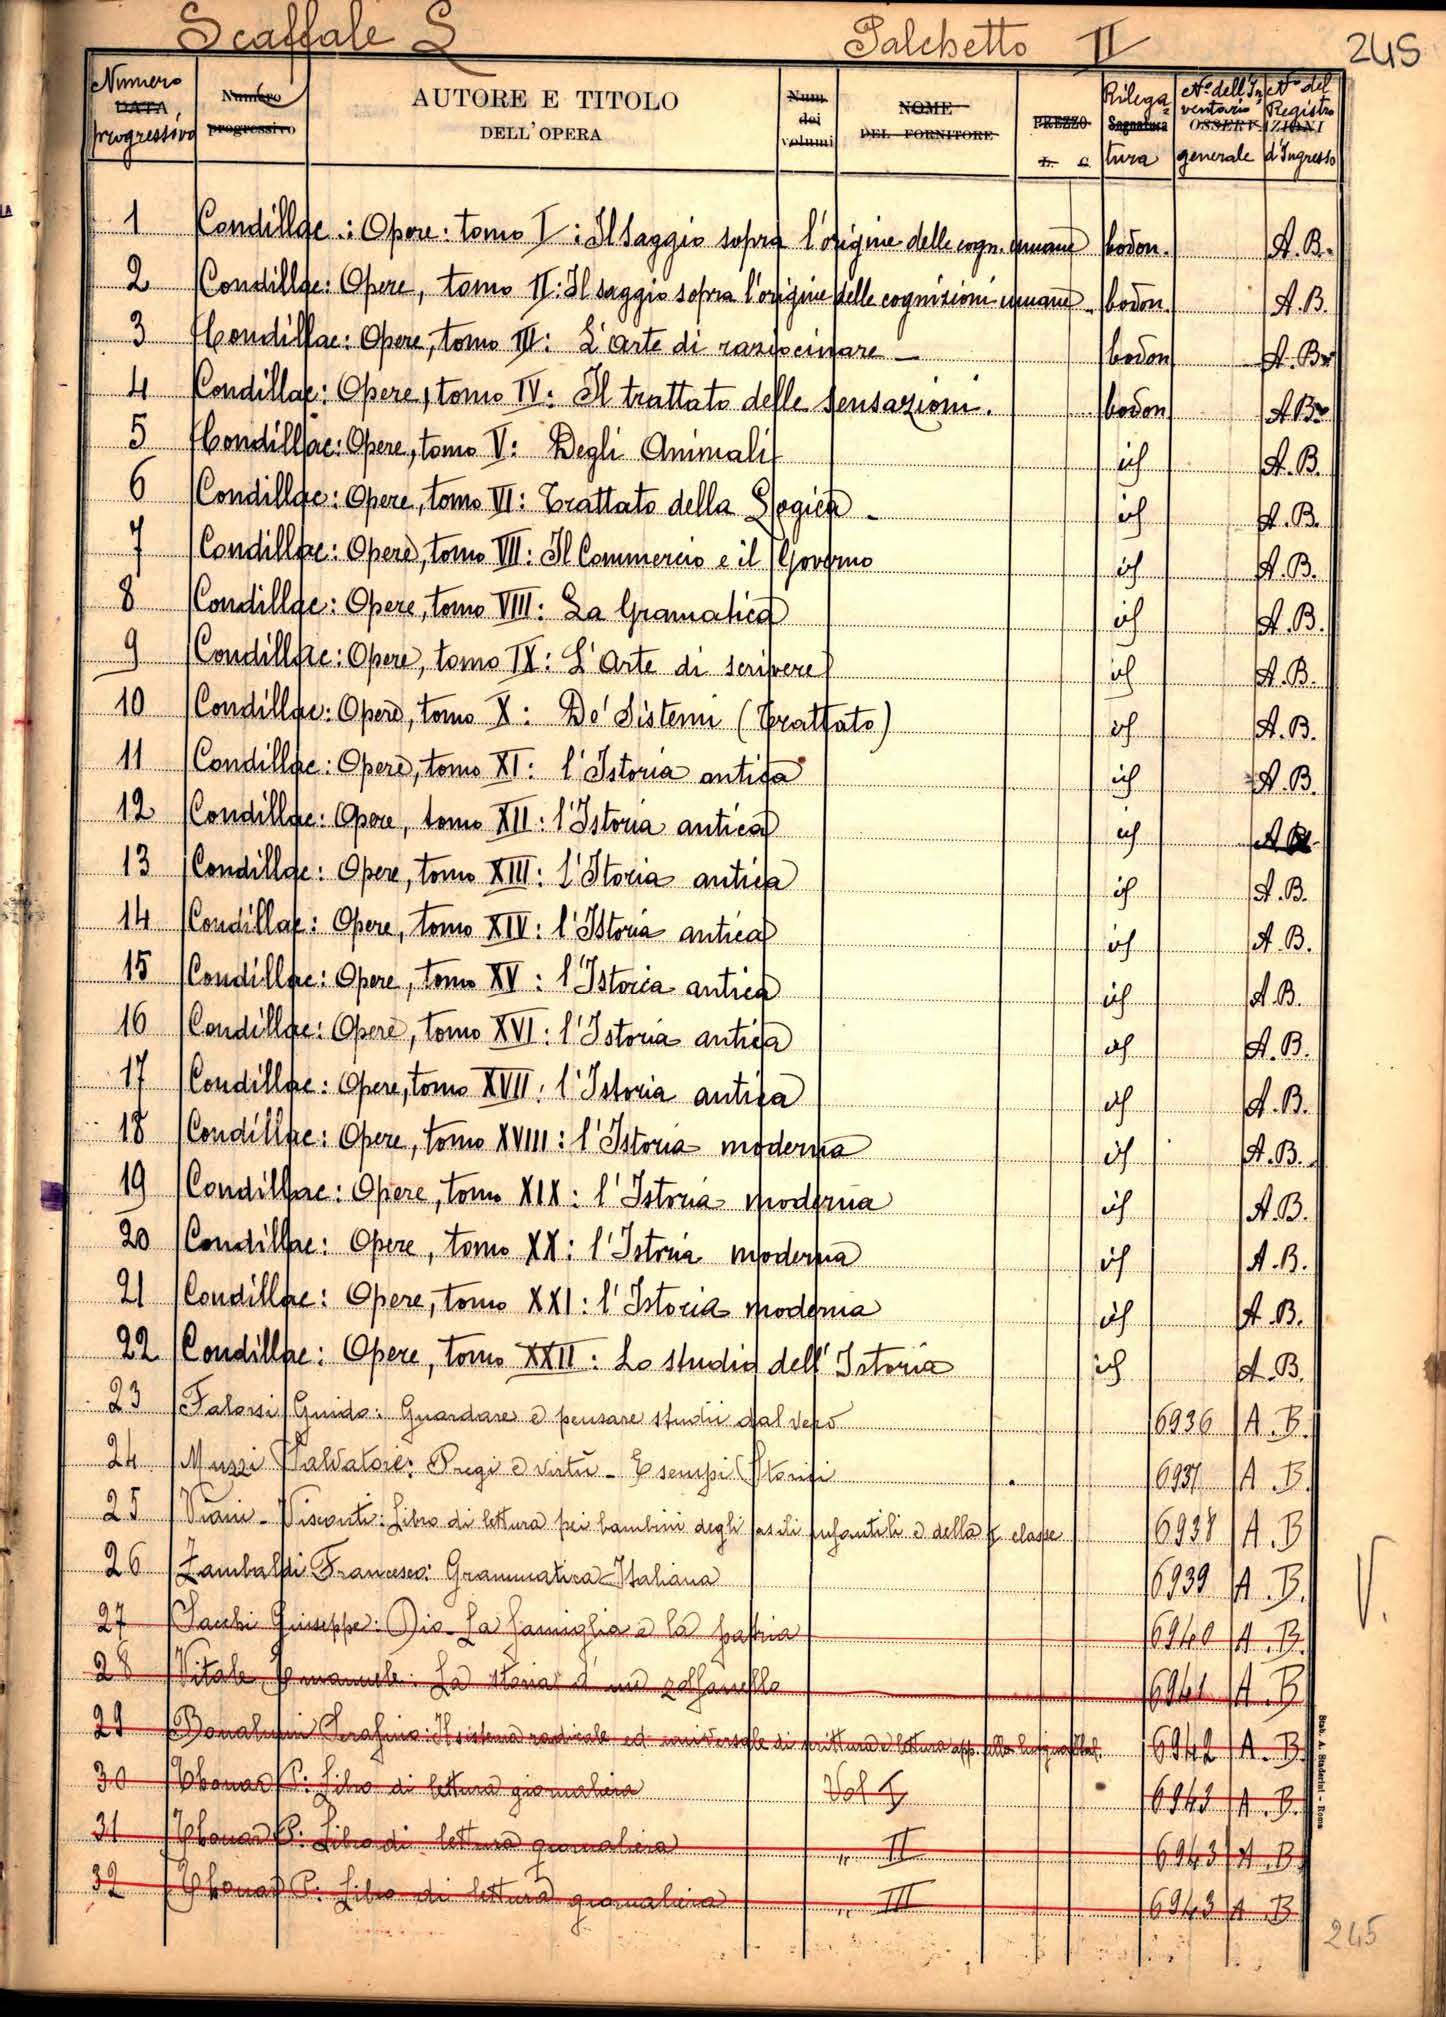 Scaffale L Palchetto II 245
Numero DATA progressivo
Numero progressivo
AUTORE E TITOLO
DELL'OPERA
Num. dei volumi
NOME
DEL FORNITORE
PREZZO
L. C.
Rilega= Segnatura tura
N.º dell'In ventario generale
OSSERVAZIONI
N.º del Registro d'Ingresso
1 Condillac: Opere: tomo I: Il Saggio sopra l'origine delle cogn. umane bodon. A. B.
2 Condillac: Opere, tomo II: Il saggio sopra l'origine delle cognizioni umane bodon. A. B.
3 Condillac: Opere, tomo III: L'arte di raziocinare bodon A. B.
4 Condillac: Opere, tomo IV: Il trattato delle sensazioni. bodon A. B.
5 Condillac: Opere, tomo V: Degli Animali id A. B.
6 Condillac: Opere, tomo VI: Trattato della Logica id A. B.
7 Condillac: Opere, tomo VII: Il Commercio e il Governo id A. B.
8 Condillac: Opere, tomo VIII: La Gramatica id A. B.
9 Condillac: Opere, tomo IX: L'Arte di scrivere id A. B.
10 Condillac: Opere, tomo X: De' Sistemi (Trattato) id A. B.
11 Condillac: Opere, tomo XI: l'Istoria antica id A. B.
12 Condillac: Opere, tomo XII: l'Istoria antica id A B
13 Condillac: Opere, tomo XIII: l'Istoria antica id A. B.
14 Condillac: Opere, tomo XIV: l'Istoria antica id A. B.
15 Condillac: Opere, tomo XV: l'Istoria antica id A. B.
16 Condillac: Opere, tomo XVI: l'Istoria antica id A. B.
17 Condillac: Opere, tomo XVII: l'Istoria antica id A. B.
18 Condillac: Opere, tomo XVIII: l'Istoria moderna id A. B.
19 Condillac: Opere, tomo XIX: l'Istoria moderna id A. B.
20 Condillac: Opere, tomo XX: l'Istoria moderna id A. B.
21 Condillac: Opere, tomo XXI: l'Istoria moderna id A. B.
22 Condillac: Opere, tomo XXII: Lo studio dell'Istoria id A. B.
23 Falorsi Guido: Guardare e pensare studii dal vero 6936 A. B.
24 Muzzi Salvatore: Pregi e virtù - Esempi Storici 6937 A. B.
25 Viani - Visconti: Libro di lettura pei bambini degli asili infantili e della I classe 6938 A. B
26 Zambaldi Francesco: Grammatica Italiana 6939 A. B.
27 Sacchi Giuseppe: Dio - La famiglia e la patria 6940 A. B.
28 Vitale Emanuele: La storia d'un zolfanello 6941 A. B
29 Bonalumi Serafino: Il sistema radicale ed universale di scrittura e lettura app. alla lingua Ital. 6942 A. B.
30 Thouar P: Libro di lettura giornaliera Vol I 6943 A. B.
31 Thouar P: Libro di lettura giornaliera " II 6943 A. B.
32 Thouar P: Libro di lettura giornaliera " III 6943 A. B
V.
Stab. A. Staderini - Roma
245